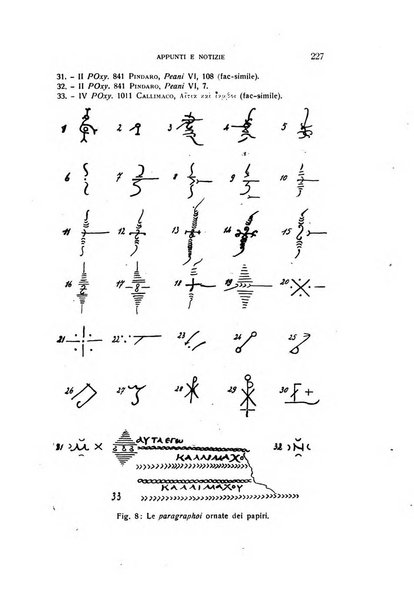 APPUNTI E NOTIZIE 227
31. – II POxy. 841 PINDARO, Peani VI, 108 (fac-simile).
32. – II POxy. 841 PINDARO, Peani VI, 7.
33. – IV POxy. 1011 CALLIMACO, Αἴτια καὶ Ἴαμβοι (fac-simile).
1 2 3 4 5
6 7 8 9 10
11 12 13 14 15
16 17 18 19 20
21 22 23 24 25
26 27 28 29 30
31 ΑΥΤΑΕΓΩ 32
ΚΑΛΛΙΜΑΧΟ
ΚΑΛΛΙΜΑΧΟΥ
33
Fig. 8: Le paragraphoi ornate dei papiri.